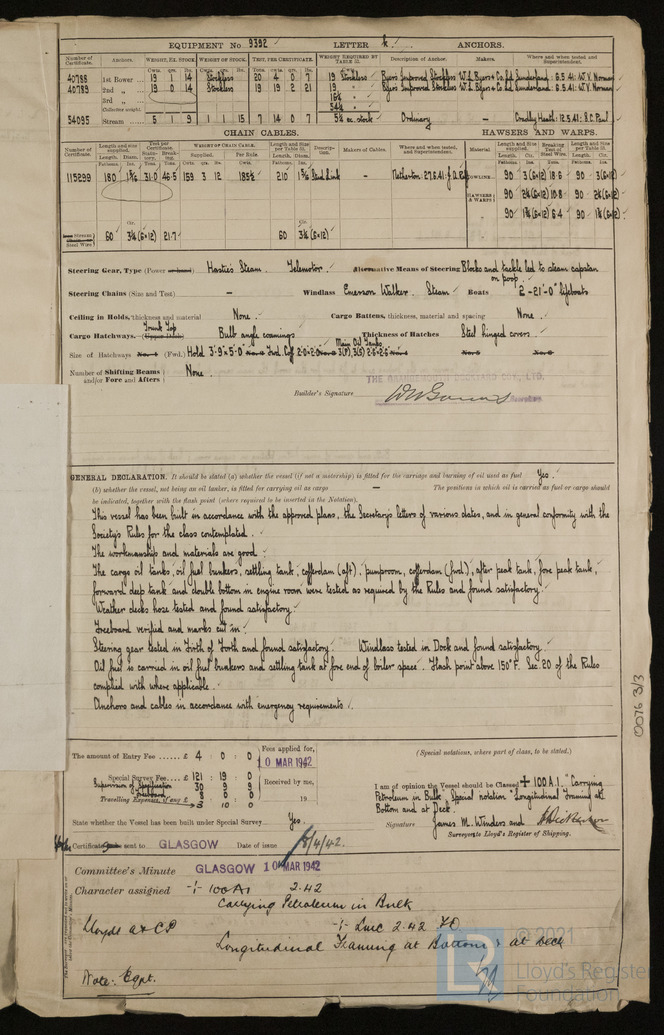 EQUIPMENT No 9392 LETTER k. ANCHORS.
Number of Certificate. Anchors. WEIGHT, EX. STOCK. WEIGHT OF STOCK. TEST, PER CERTIFICATE. WEIGHT REQUIRED BY TABLE 31. Description of Anchor. Makers. Where and when tested and Superintendent.
40788 1st Bower ... 19 1 14 Stockless 20 4 0 7 19 Stockless Byers Improved Stockless W.L. Byers & Co. Ltd Sunderland: 6.5.41: W.Y. Norman
40789 2nd „ 19 0 14 Stockless 19 19 2 21 19 „ Byers Improved Stockless W.L. Byers & Co. Ltd Sunderland: 6.5.41: W.Y. Norman
3rd „
Collective weight 54¾
54095 Stream 5 1 9 1 1 15 7 14 0 7 5¼ ex. stock Ordinary — Cradley Heath: 12.5.41: S.C. Paul
CHAIN CABLES. HAWSERS AND WARPS.
Number of Certificate. Length and size supplied. Test per Certificate. WEIGHT OF CHAIN CABLE. Length and Size per Table 31. Description. Makers of Cables. Where and when tested, and Superintendent. Material Length and Size supplied. Breaking Test of Steel Wire. Length and Size per Table 31.
115299 180 1 31.0 46.5 159 3 12 185½ 210 Stud Link — Netherton: 27.6.41:
TOWLINE 90 3 (6×12) 18.6 90 3 (6×12)
HAWSERS & WARPS 90 2¼ (6×12) 10.8 90 2¼ (6×12)
90 1¾ (6×12) 6.4 90 1¾ (6×12)
Steel Wire 60 3¼ (6×12) 21.7 60 3¼ (6×12)
Steering Gear, Type (Power or hand) Hastie's Steam. Telemotor. Alternative Means of Steering Blocks and tackle led to steam capstan on poop.
Steering Chains (Size and Test) — Windlass Emerson Walker. Steam Boats 2 - 21'-0" lifeboats
Ceiling in Holds, thickness and material None. Cargo Battens, thickness, material and spacing None.
Cargo Hatchways. (Upper Deck) Trunk Top Bulb angle coamings Thickness of Hatches Steel hinged covers.
Size of Hatchways No. 1 (Fwd.) Hold 3'-9"×5'-0" No. 2 Fwd. Coff 2'-0"×2'-0" No. 3 Main Oil Tanks 3(P), 3(S) 2'-6"×2'-6" No. 4 No. 5 No. 6
Number of Shifting Beams and/or Fore and Afters None.
THE
LTD.
Builder's Signature
GENERAL DECLARATION. It should be stated (a) whether the vessel (if not a motorship) is fitted for the carriage and burning of oil used as fuel Yes.
(b) whether the vessel, not being an oil tanker, is fitted for carrying oil as cargo — The positions in which oil is carried as fuel or cargo should
be indicated, together with the flash point (where required to be inserted in the Notation).
This vessel has been built in accordance with the approved plans, the Secretary's letters of various dates, and in general conformity with the
Society's Rules for the class contemplated.
The workmanship and materials are good.
The cargo oil tanks, oil fuel bunkers, settling tank, cofferdam (aft), pumproom, cofferdam (fwd), after peak tank, fore peak tank,
forward deep tank and double bottom in engine room were tested as required by the Rules and found satisfactory.
Weather decks hose tested and found satisfactory.
Freeboard verified and marks cut in.
Steering gear tested in Firth of Forth and found satisfactory. Windlass tested in Dock and found satisfactory.
Oil fuel is carried in oil fuel bunkers and settling tank at fore end of boiler space. Flash point above 150°F. Sec. 20 of the Rules
complied with where applicable.
Anchors and cables in accordance with emergency requirements.
0076 3/3
The amount of Entry Fee ...... £ 4 : 0 : 0 Fees applied for, (Special notations, where part of class, to be stated.)
10 MAR 1942
Special Survey Fee... £ 121 : 19 : 0
Supervision of Specification 30 9 9 Received by me,
Freeboard 8 0 0
Travelling Expenses, if any £ 3 10 0 19
I am of opinion the Vessel should be Classed + 100 A.1. "Carrying
Petroleum in Bulk" Special notation "Longitudinal Framing at
Bottom and at Deck."
State whether the Vessel has been built under Special Survey Yes.
Signature James M. Winders and
Surveyors to Lloyd's Register of Shipping.
Certificate sent to GLASGOW Date of issue 8/4/42.
Committee's Minute GLASGOW 10 MAR 1942
Character assigned + 100A1 2.42
Carrying Petroleum in Bulk
Lloyds A & C.P. + LMC 2.42 FO.
Longitudinal Framing at Bottom & at Deck
Note: Eqpt.
© 2021
Lloyd's Register
Foundation